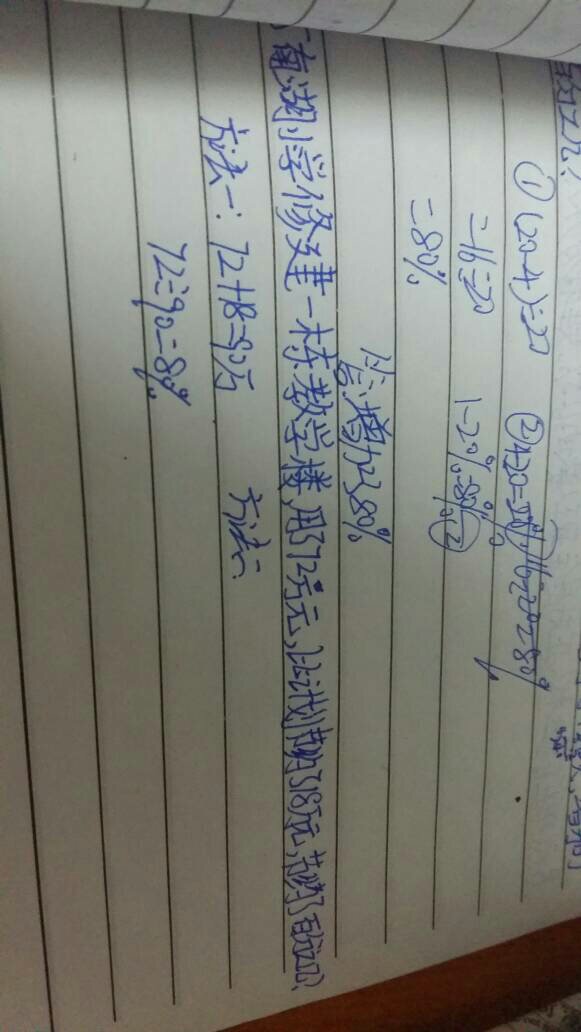 百分之几?
①(20-4)÷20
②4÷20=20% 16÷20=80%
=16÷20
1-20%=80%
=80%
答:增加了380%
南湖小学修建一栋教学楼,用了72万元,比计划节约了18万元,节约了百分之几?
方法一:72+18=90万
方法二:
72÷90=80%